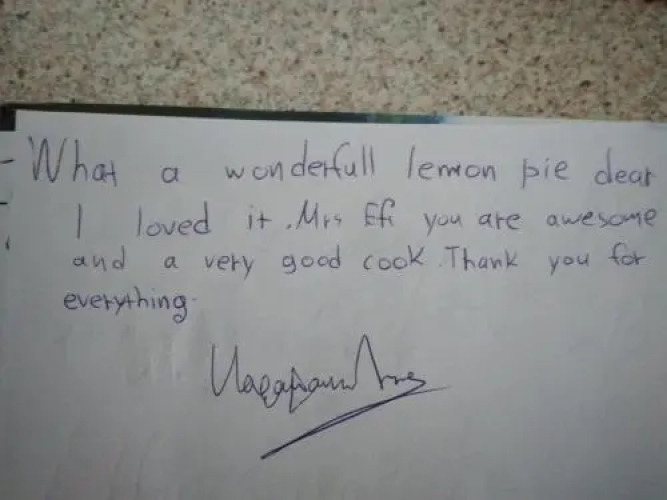 What a wonderfull lemon pie dear
I loved it. Mrs Efi you are awesome
and a very good cook. Thank you for
everything.